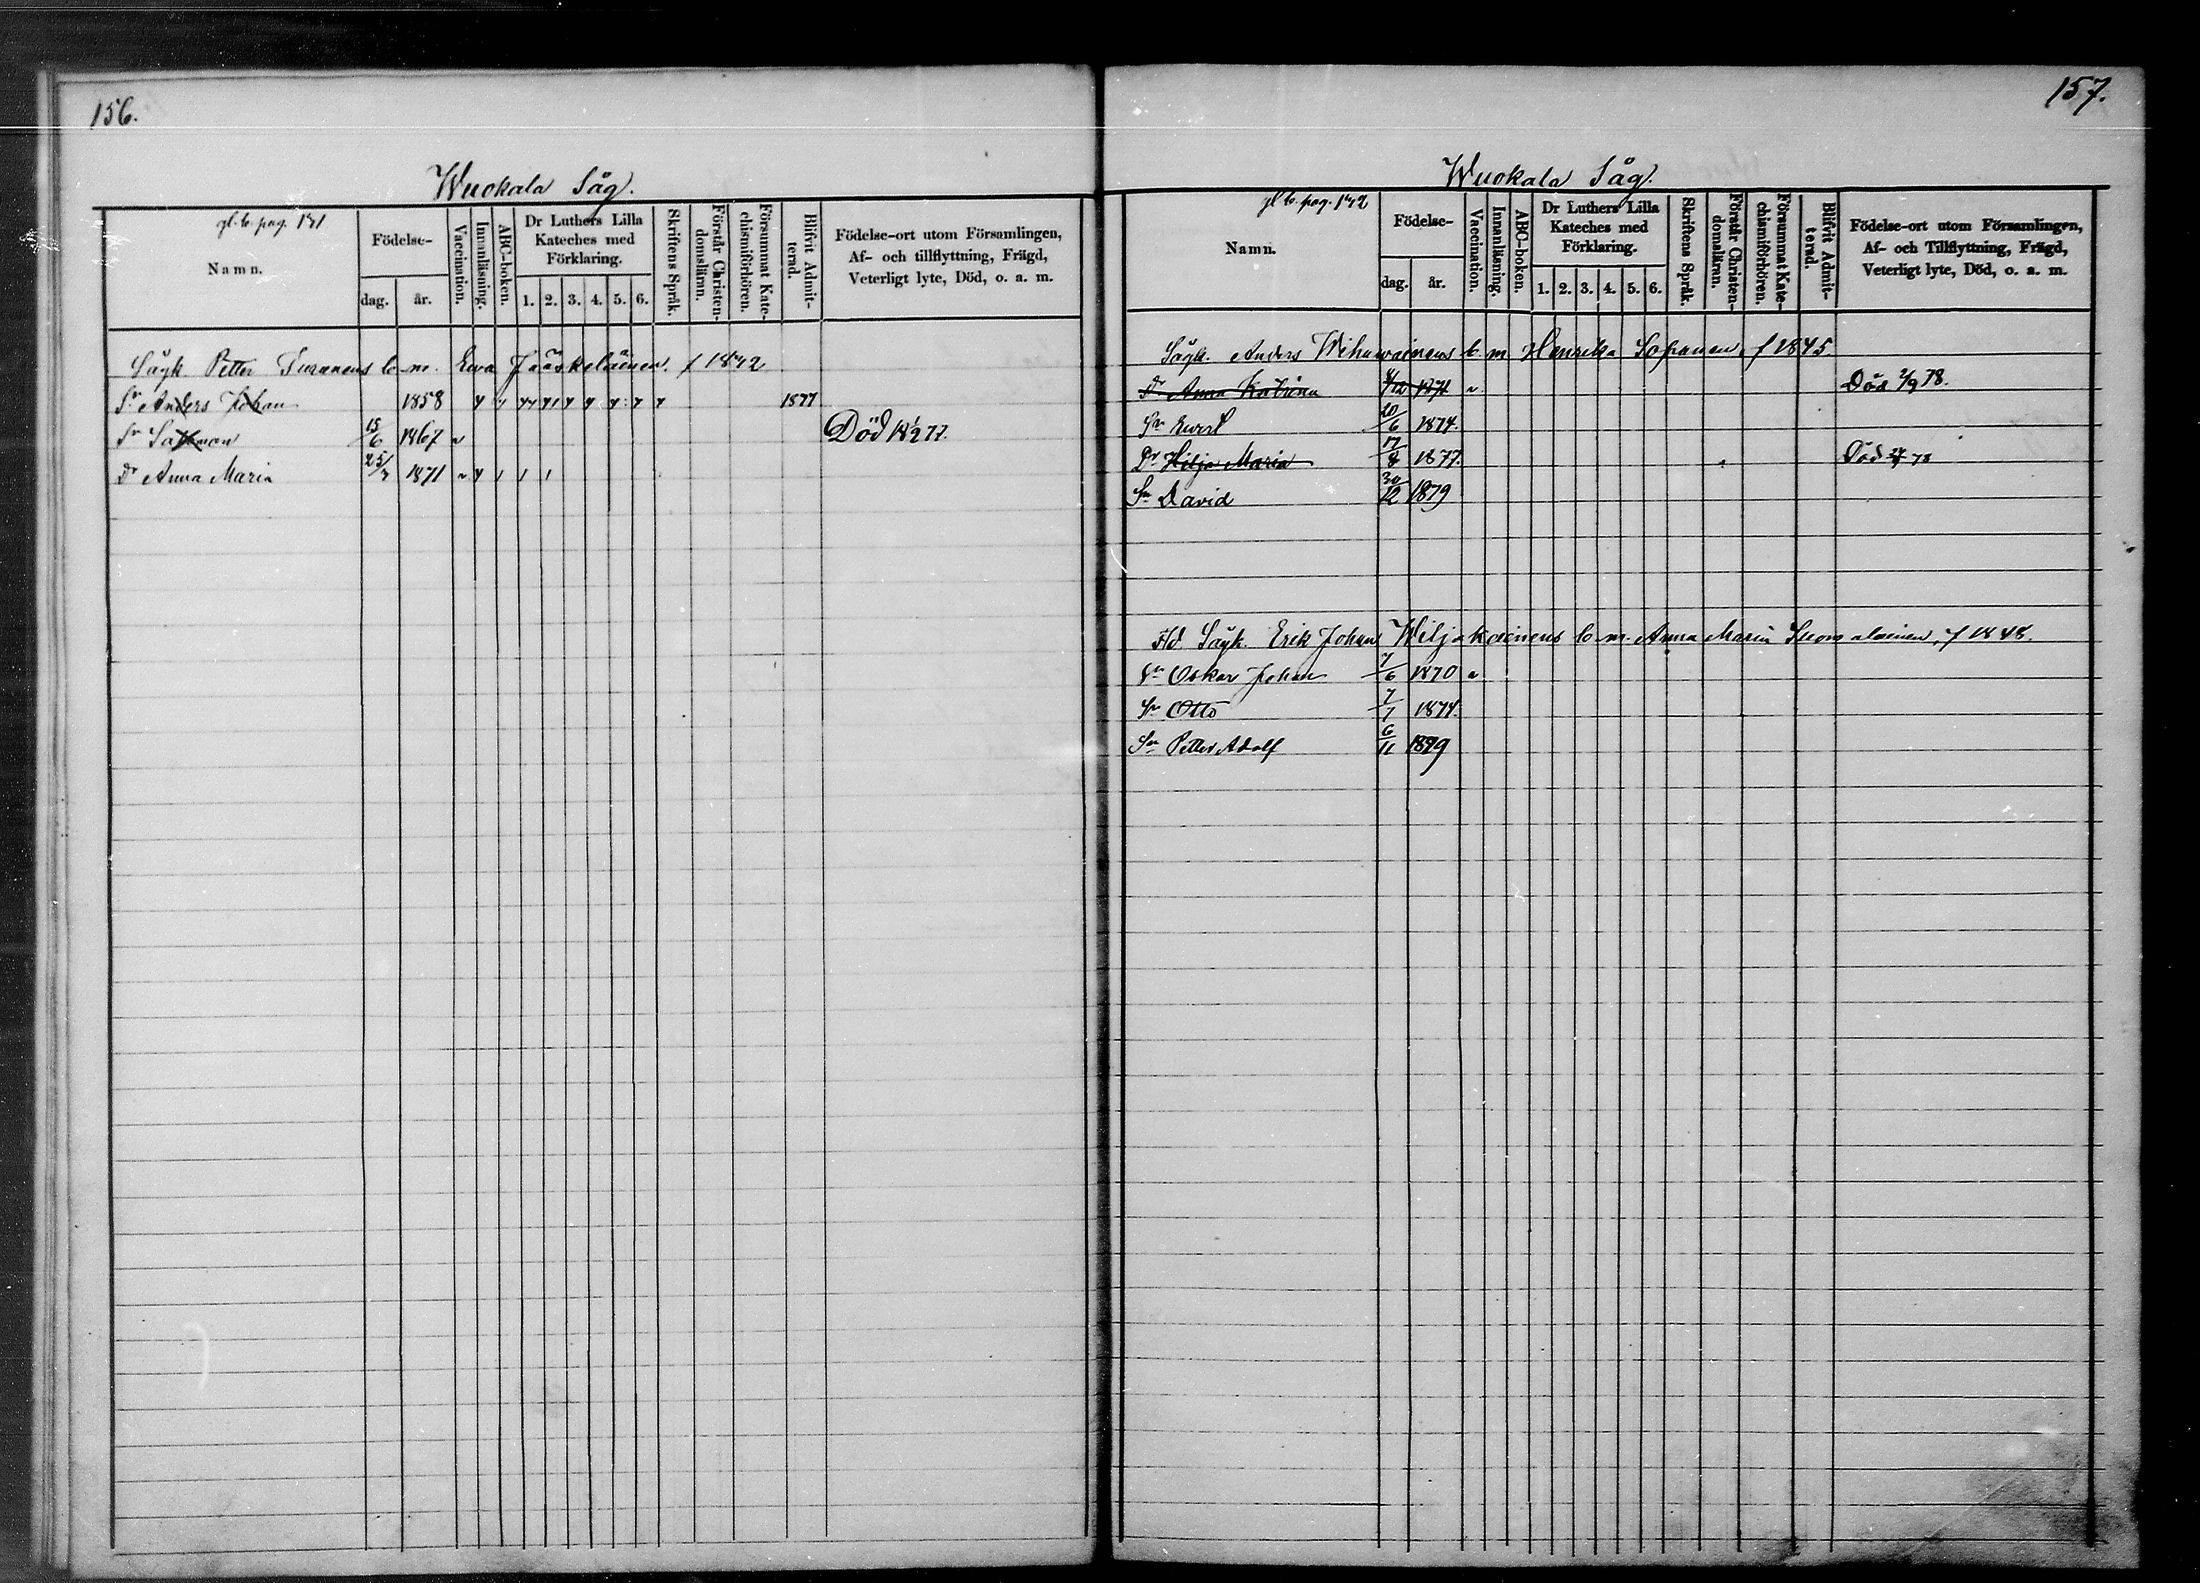 156.
Wuokala Såg.
gl. b. pag. 141
Namn.
Födelse-
dag. år.
Vaccination.
Innanläsning.
ABC-boken.
Dr Luthers Lilla Kateches med Förklaring.
1. 2. 3. 4. 5. 6.
Skriftens Språk.
Förstår Christendomsläran.
Försummat Katechismiförhören.
Blifvit Admitterad.
Födelse-ort utom Församlingen,
Af- och tillflyttning, Frägd,
Veterligt lyte, Död, o. a. m.
Sågk. Petter Turanens b. m. Ewa Jääskeläinen. f 1842
Sn Anders Johan 1858 1877
Sn Salomon 15/6 1867 Död 18 1/2 77.
Dr Anna Maria 25/3 1871
157.
Wuokala Såg.
gl. b. pag. 142
Namn.
Födelse-
dag. år.
Vaccination.
Innanläsning.
ABC-boken.
Dr Luthers Lilla Kateches med Förklaring.
1. 2. 3. 4. 5. 6.
Skriftens Språk.
Förstår Christendomsläran.
Försummat Katechismiförhören.
Blifvit Admitterad.
Födelse-ort utom Församlingen,
Af- och Tillflyttning, Frägd,
Veterligt lyte, Död, o. a. m.
Sågk. Anders Wihawainens b. m. Henrika Sopanen, f 1845
Dr Anna Katrina 1871 Död 2/9 78.
Sn 20/6 1874.
Dr Hilja Maria 17/8 1877. Död 78
Sn David 30/12 1879
Sågk. Erik Johan Wiljakainens b. m. Anna Maria Suomalainen, f 1848.
Sn Oskar Johan 7/6 1870
Sn Otto 7/1 1874.
Sn Petter Adolf 6/11 1879